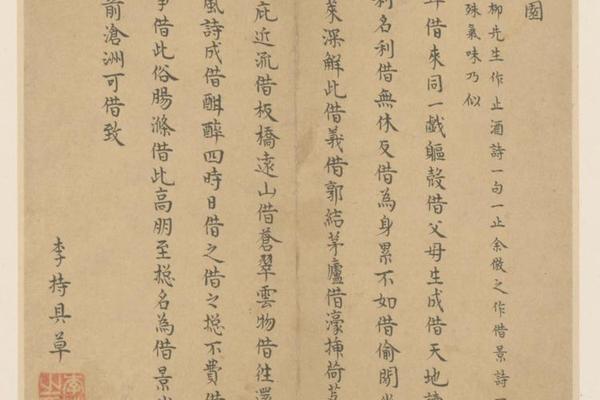 園
柳先生作止酒詩一句一止余倣之作借景詩一
殊氣味乃似
年借來同一戲軀殼借父母生成借天地
利名利借無休反借為身累不如借偷閒
來深解此借義借郭結茅廬借濠插荷
庇近流借板橋遠山借蒼翠雲物借往還
風詩成借酣醉四時日借之借之摠不費借
爭借此俗腸滌借此高朋至摠名為借景
前滄洲可借致
李持具草